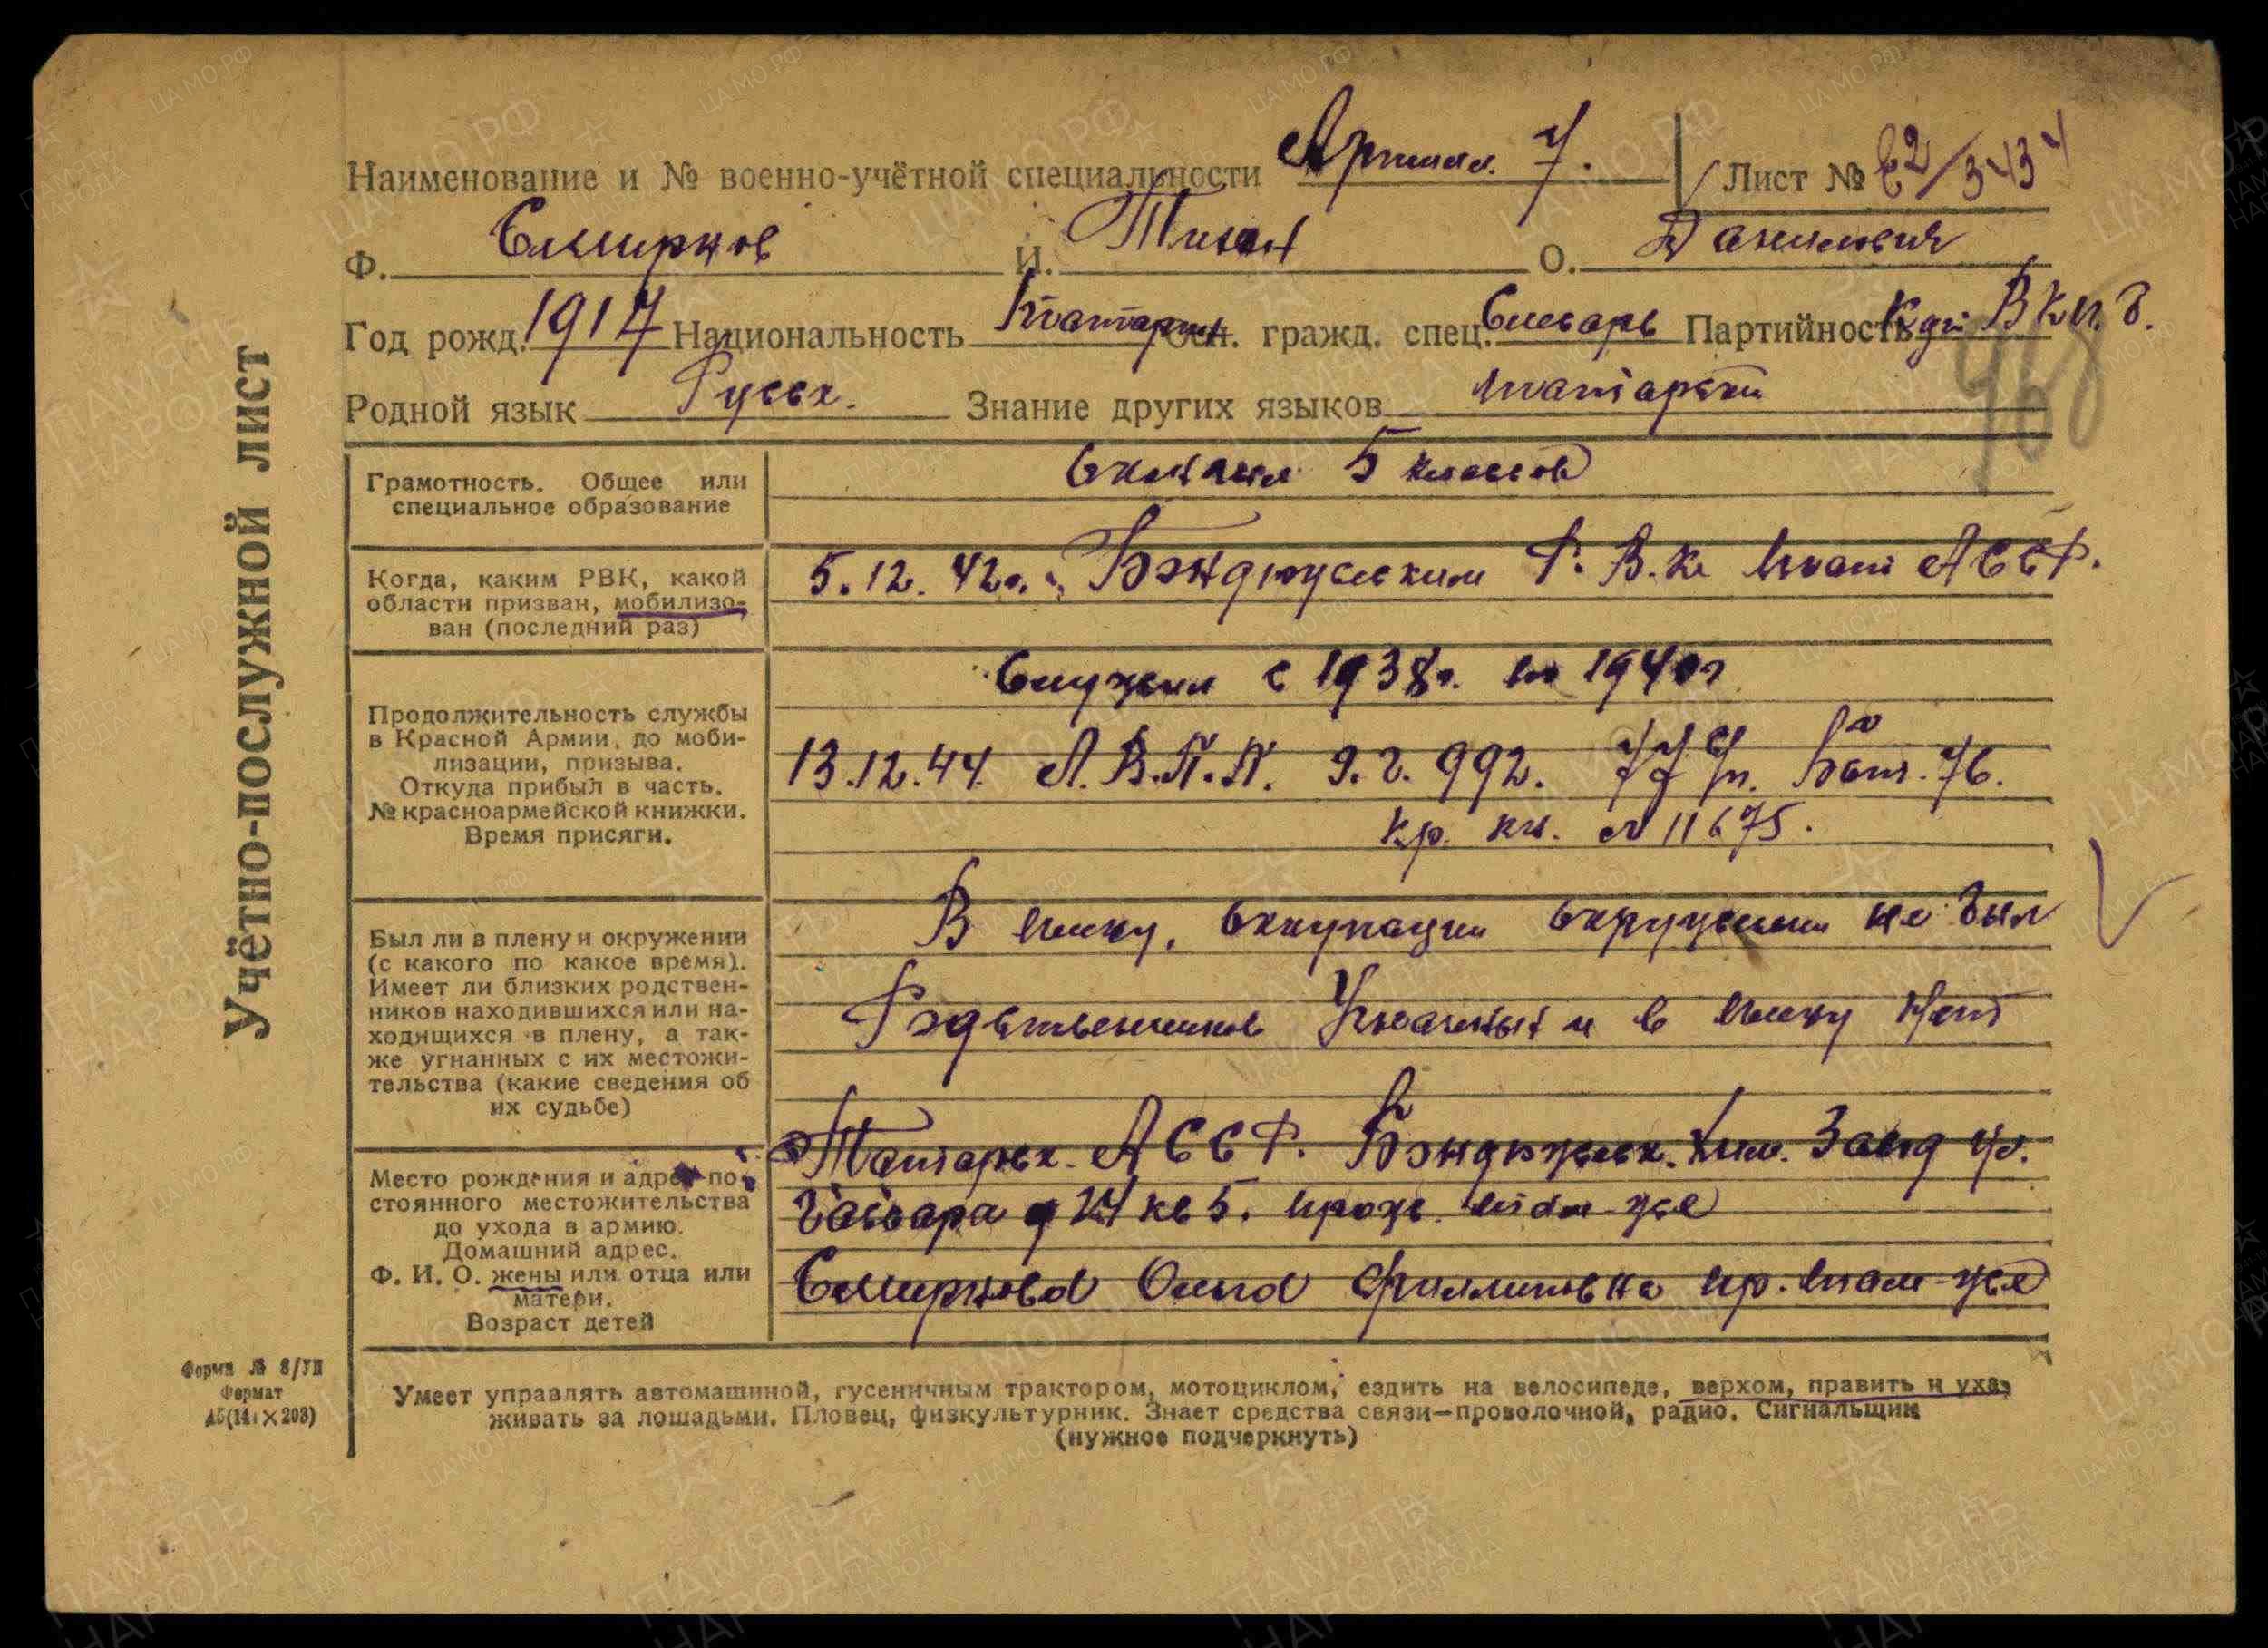 Учётно-послужной лист
Наименование и № военно-учётной специальности Артилл. 7. Лист № 62/3434
Ф. Смирнов И. О. Данилович
Год рожд. 1917 Национальность татарин Осн. гражд. спец. Слесарь Партийность Кдт ВКП.б.
Родной язык Русск. Знание других языков татарский
968
Грамотность. Общее или
специальное образование
окончил 5 классов
Когда, каким РВК, какой
области призван, мобилизо-
ван (последний раз)
5.12.42г. Бондюжским Р.В.К. Тат АССР.
Продолжительность службы
в Красной Армии, до моби-
лизации, призыва.
Откуда прибыл в часть.
№ красноармейской книжки.
Время присяги.
Служил с 1938г. по 1940г
13.12.44. А.В.П.П. 992. 77 Бат. 76.
кр. кн. № 11675.
Был ли в плену и окружении
(с какого по какое время).
Имеет ли близких родствен-
ников находившихся или на-
ходящихся в плену, а так-
же угнанных с их местожи-
тельства (какие сведения об
их судьбе)
В плену, оккупации окружении не был
Родственников Угнанных и в плену Нет
Место рождения и адрес по-
стоянного местожительства
до ухода в армию.
Домашний адрес.
Ф. И. О. жены или отца или
матери.
Возраст детей
Татарск. АССР. Бондюжск. Хим. Завод ул.
д 24 кв 5. прож. там-же
Смирнова Ольга Филлиповна пр. там-же
Форма № 8/УП
Формат
А5(14 × 203)
Умеет управлять автомашиной, гусеничным трактором, мотоциклом, ездить на велосипеде, верхом, править и уха-
живать за лошадьми. Пловец, физкультурник. Знает средства связи—проволочной, радио. Сигнальщик
(нужное подчеркнуть)